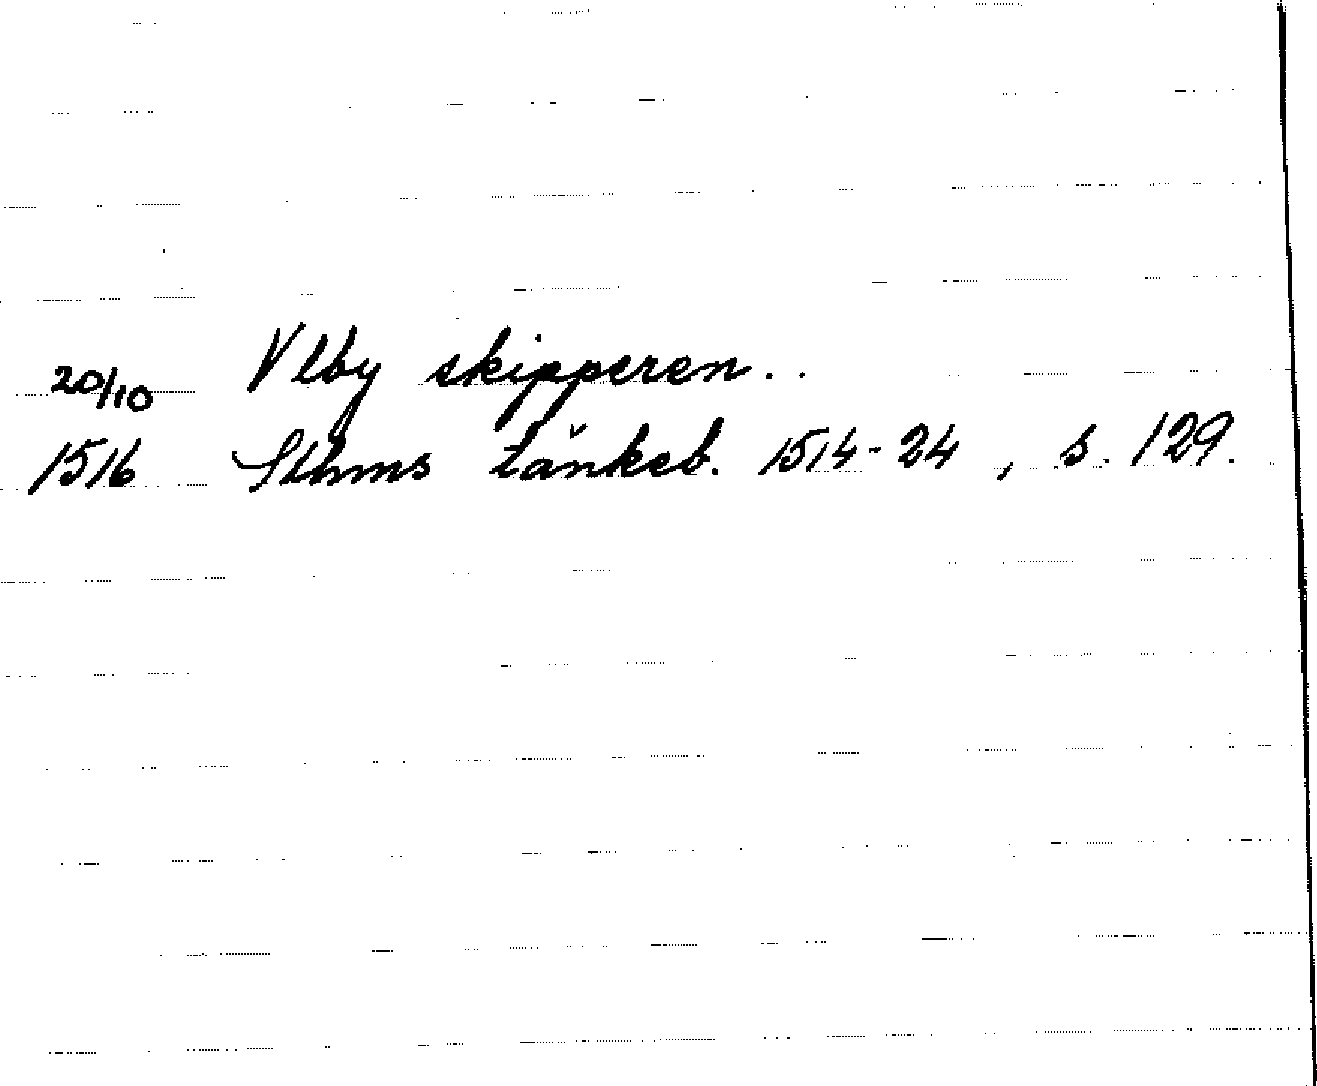 20/10 Vlby skipperen..
1516 Sthms tänkeb. 1514-24, s. 129.